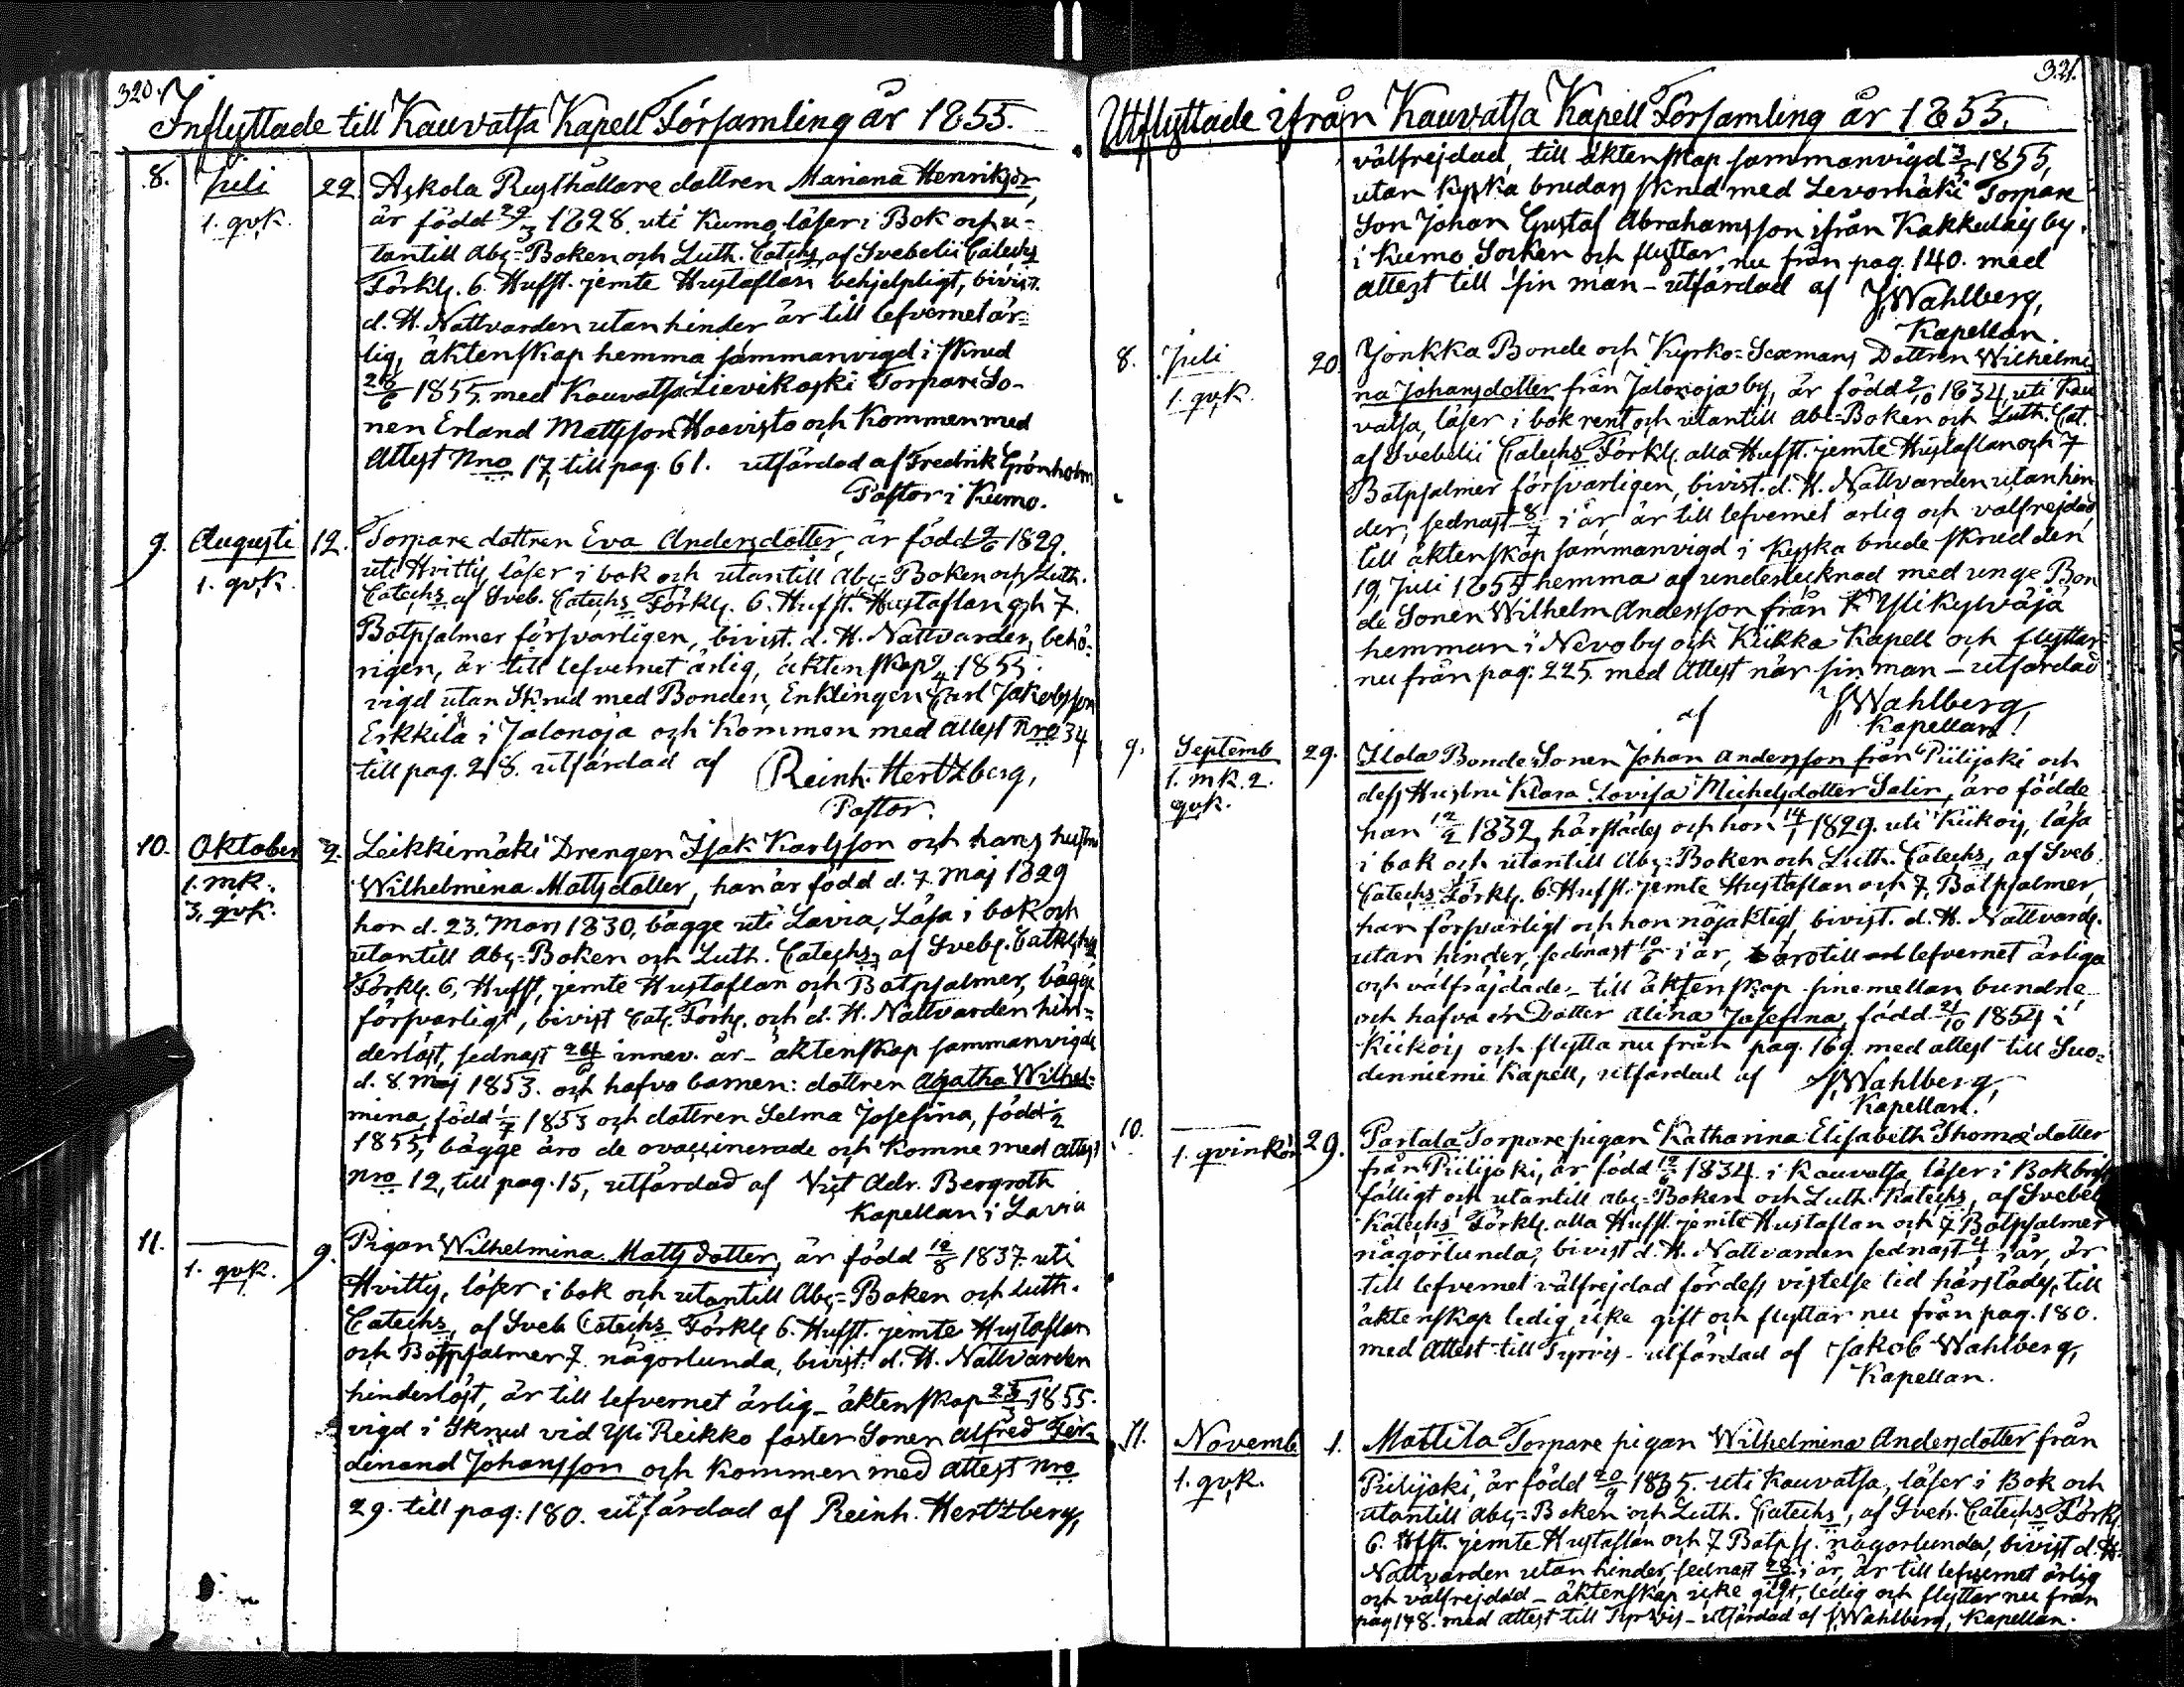 320.
Inflyttade till Kauvatsa Kapell Församling år 1855.
8. Juli 22. Askola Rusthållare dottren Mariana Henriksdr,
1. qvk. är född 29/3 1828 uti Kumo, läser i Bok och u-
tantill Abc=Boken och Luth. Catechs af Svebelii Catechs
Förklg. 6. Hufst. jemte Hustaflan behjelpligt, bivist.
d. H. Nattvarden utan hinder är till lefvernet är=
lig, äktenskap hemma sammanvigd i skrud
28/6 1855. med Kauvatsa Lievikoski Torpare So-
nen Erland Mattsson Haavisto och Kommen med
Attest Nro 17, till pag. 61. utfärdad af Fredrik Grönholm
Pastor i Kumo.
9. Augusti 12. Torpare dottren Eva Andersdotter, är född 2/6 1829.
1. qvk. uti Hvittis, läser i bok och utantill Abc=Boken och Luth.
Catechs af Sveb. Catechs Förklg. 6. Hufst. Hustaflan och 7.
Botpsalmer försvarligen, bivist. d. H. Nattvarden behö-
rigen, är till lefvernet ärlig, äktenskap 9/4 1855.
vigd utan Skrud med Bonden, Enklingen Carl Jakobsson
Erkkilä i Jalonoja och Kommen med attest Nro 34
till pag. 218. utfärdad af Reinh. Hertzberg,
Pastor.
10. Oktober 2. Leikkimäki Drengen Isak Karlsson och hans hustru
1. mk. Wilhelmina Mattsdotter, han är född d. 7 Maj 1829
3. qvk. hon d. 23. Mars 1830, bägge uti Lavia, Läsa i bok och
utantill Abc=Boken och Luth. Catechs, af Sveb. Catechs
Förklg. 6. Hufst, jemte Hustaflan och Botpsalmer, bägge
försvarligt, bivist Cat. Förhr. och d. H. Nattvarden hin=
derlöst, sednast innev. år - äktenskap sammanvigde
d. 8. Maj 1853. och hafva barnen: dottren Agatha Wilhel=
mina, född 1/7 1853 och dottren Selma Josefina, född
1855, bägge äro de ovaccinerade och Komne med attest
Nro 12, till pag. 15, utfärdad af Vict Adr. Bergroth
Kapellan i Lavia
11. 9. Pigan Wilhelmina Mattsdotter, är född 12/8 1837. uti
1. qvk. Hvittis, läser i bok och utantill Abc=Boken och Luth.
Catechs, af Sveb Catechs Förklg 6. Hufst. jemte Hustaflan
och Botpsalmer 7. någorlunda, bivist. d. H. Nattvarden
hinderlöst, är till lefvernet ärlig - äktenskap 25/3 1855.
vigd i Skrud vid Yli Reikko foster Sonen Alfred Fer-
dinand Johansson och Kommen med attest Nro
29. till pag: 180. utfärdad af Reinh. Hertzberg,
321.
Utflyttade ifrån Kauvatsa Kapell Församling år 1855.
välfrejdad, till äktenskap sammanvigd 1855,
utan kyska brudars skrud med Levomäki Torpare
Son Johan Gustaf Abrahamsson ifrån Kakkulais by.
i Kumo Socken och flyttar nu från pag. 140. med
attest till sin man - utfärdad af J. Wahlberg,
Kapellan.
8. Juli 20. Jonkka Bonde och Kyrko=Sexmans Dottren Wilhelmi
1. qvk. na Johansdotter från Jalonoja by, är född 2/10 1834, uti Kau
vatsa, läser i bok rent och utantill Abc=Boken och Luth. Cat.
af Svebelii Catechs Förklg. alla Hufst. jemte Hustaflan och 7
Botpsalmer försvarligen, bivist. d. H. Nattvarden utan hin
der, sednast 8/7 i år, är till lefvernet ärlig och välfrejdad
till äktenskap sammanvigd i kyska brude skrud den
19, Juli 1855 hemma af undertecknad med unge Bon
de Sonen Wilhelm Andersson från Yli Kylväjä
hemman i Nevo by och Kiikka Kapell och flyttar
nu från pag: 225. med Attest när sin man - utfärdad
af J. Wahlberg,
Kapellan.
9. Septemb 29. Ilola Bonde Sonen Johan Andersson från Piilijoki och
1. mk. 2. dess Hustru Klara Lovisa Michelsdotter Salin, äro födde
qvk. han 12/2 1832, härstädes och hon 14/1 1829. uti Kiikois, läsa
i bok och utantill Abc=Boken och Luth. Catechs, af Sveb.
Catechs Förklg. 6. Hufst. jemte Hustaflan och 7. Botpsalmer,
han försvarligt och hon nöjaktigt, bivist. d. H. Nattvards.
utan hinder, sednast 10/6 i år, äro till lefvernet ärliga
och välfräjdade - till äktenskap sinemellan bundne
och hafva en Dotter Alina Josefina, född 21/10 1854 i
Kiikois och flytta nu från pag. 169. med attest till Suo=
denniemi Kapell, utfärdad af J. Wahlberg,
Kapellan.
10. 29. Partala Torpare pigan Katharina Elisabeth Thomædotter
1. qvinkön från Piilijoki, är född 12/6 1834. i Kauvatsa, läser i Bok brist
fälligt och utantill Abc=Boken och Luth. Katechs, af Svebel
Katechs Förklg. alla Hufst. jemte Hustaflan och 7 Botpsalmer
någorlunda, bivist d. H. Nattvarden sednast i år, är
till lefvernet välfrejdad för dess vistelse tid härstädes, till
äktenskap ledig, icke gift och flyttar nu från pag. 180.
med Attest till Tyrvis - utfärdad af Jakob Wahlberg,
Kapellan.
11. Novemb 1. Mattila Torpare pigan Wilhelmina Andersdotter från
1. qvk. Piilijoki, är född 20/9 1835. uti Kauvatsa, läser i Bok och
utantill Abc=Boken och Luth. Catechs, af Sveb. Catechs Förklg
6. Hfst. jemte Hustaflan och 7 Botps. någorlunda, bivist d. H.
Nattvarden utan hinder, sednast i år, är till lefvernet ärlig
och välfrejdad - äktenskap icke gift, ledig och flyttar nu från
pag 178. med attest till Tyrvis - utfärdad af J. Wahlberg, Kapellan.